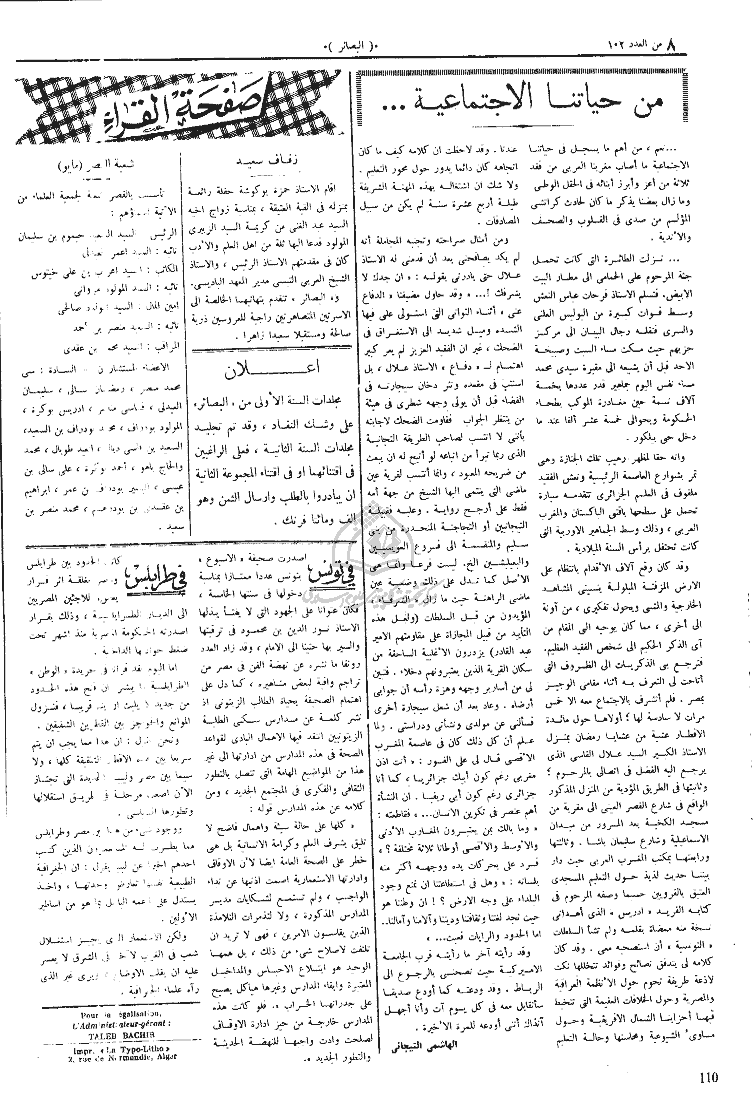 ٨ من العدد ١٠٢
( البصائر )
من حياتنا الاجتماعية ...
...نعم ، من أهم ما يسجل في حياتنا
الاجتماعية ما أصاب مغربنا العربي من فقد
ثلاثة من أعز وأبرز أبنائه في الحقل الوطني
وما زال بعضنا يذكر ما كان لحادث كراتشي
المؤلم من صدى في القلوب والصحف
والأندية .
... نزلت الطائرة التي كانت تحمل
جثة المرحوم علي الحمامي الى مطار البيت
الابيض. فتسلم الاستاذ فرحات عباس النعش
وسط قوات كبيرة من البوليس العلني
والسري فنقله رجال البيان الى مركز
حزبهم حيث مكث مساء السبت وصبيحة
الاحد قبل أن يشيعه الى مقبرة سيدي محمد
مساء نفس اليوم جماهير قدر عددها بخمسة
آلاف نسمة حين مغادرة الموكب بطحاء
الحكومة وبحوالى خمسة عشر ألفا عند ما
دخل حي بلكور .
وانه حقا لمظهر رهيب تلك الجنازة وهي
تمر بشوارع العاصمة الرئيسية ونعش الفقيد
ملفوف في العلم الجزائري تتقدمه سيارة
تحمل على سطحها باقتي الباكستان والمغرب
العربي ، وذلك وسط الجماهير الاوربية التي
كانت تحتفل برأس السنة الميلادية .
وقد كان وقع آلاف الأقدام بانتظام على
الارض المزفتة المبلولة ينسيني المشاهد
الخارجية والمشي ويحول تفكيري ، من آونة
الى أخرى ، مما كان يوحيه الي المقام من
آي الذكر الحكيم الى شخص الفقيد العظيم.
فترجع بي الذكريات الى الظروف التي
أتاحت لي التعرف به أثناء مقامي الوجيز
بمصر . فلم أتشرف بالاجتماع معه الا خمس
مرات لا سادسة لها ؛ أولاها حول مائدة
الافطار عشية من عشايا رمضان بمنزل
الاستاذ الكبير السيد علال الفاسي الذي
يرجع اليه الفضل في اتصالي بالمرحوم ؛
وثانيتها في الطريق المؤدية من المنزل المذكور
الواقع في شارع القصر العيني الى مقربة من
مسجد الكخية بعد المرور من ميدان
الاسماعيلية وشارع سليمان باشا . وثالثتها
ورابعتها بمكتب المغرب العربي حيث دار
بيننا حديث لذيذ حول التعليم المسجدي
العتيق بالقرويين حسما وصفه المرحوم في
كتابه الفريد « ادريس » الذي أهداني
نسخة منه ممضاة بقلمه ولم تشأ السلطات
« التونسية » أن استصحبه معي . وقد كان
كلامه لي يبتدئ نصائح وفوائد تتخللها نكت
لاذعة طريفة تحوم حول الأنظمة العراقية
والمصرية وحول الخلافات العقيمة التي تتخبط
فيها أحزابنا الشمال الافريقية وحول
مساوئ الشيوعية ومحاسنها وحالة التعليم
عدنا . وقد لاحظت ان كلامه كيف ما كان
اتجاهه كان دائما يدور حول محور التعليم .
ولا شك ان اشتغاله بهذه المهنة الشريفة
طيلة أربع عشرة سنة لم يكن من سبيل
المصادفات .
ومن أمثال صراحته وتجنبه المجاملة أنه
لم يكد يصافحني بعد أن قدمني له الاستاذ
علال حتى بادرني بقوله : « ان جدك لا
يشرفك !... » وقد حاول مضيفنا « الدفاع
عني » أثناء الثواني التي استولى علي فيها
التبسم وميل شديد الى الاستغراق في
الضحك ، غير ان الفقيد العزيز لم يعر كبير
اهتمام لـ « دفاع » الاستاذ علال ، بل
استتب في مقعده ونثر دخان سيجارته في
الفضاء قبل أن يولي وجهه شطري في هيئة
من ينتظر الجواب فقاومت الضحك لاجابته
بأنني لا انتسب لصاحب الطريقة التجانية
الذي ربما تبرأ من اتباعه لو أتيح له ان يبعث
من ضريحه المعبود ، وانما أنتسب لقرية عين
ماضي التي ينتمي اليها الشيخ من جهة أمه
فقط على أرجح رواية . وعليه فقبيلة
التيجانيين أو التجاجنة المنحدرة من بني
سليم والمنقسمة الى فروع العويسيين
والعيشيين الخ. ليست فرعا وانما هي
الأصل كما تدل على ذلك وضعية عين
ماضي الراهنة حيث ما زال « الشرفاء »
المؤيدون من قبل السلطات (ولعل هذه
التأييد من قبيل المجازاة على مقاومتهم الامير
عبد القادر) يرزحون الأغلبية الساحقة من
سكان القرية الذين يعتبرونهم دخلاء. فتبين
لي من أسارير وجهه وهزة رأسه أن جوابي
أرضاه . وعاد بعد أن شعل سيجارة أخرى
فسألني عن مولدي ونشأتي ودراستي . ولما
علم أن كل ذلك كان في عاصمة المغرب
الاقصى قال لي على الفور : « أنت اذن
مغربي رغم كون أبيك جزائريا ، كما أنا
جزائري رغم كون أبي ريفيا . ان النشأة
أهم عنصر في تكوين الانسان... » فقاطعته :
« وما بالك بمن يعتبرون المغارب الأدنى
والأوسط والأقصى أوطانا ثلاثة مختلفة ؟ »
فرد علي بحركات يده ووجهه أكثر منه
بلسانه : « وهل في استطاعتنا ان نمنع وجود
البلداء على وجه الارض ؟ ! ان وطننا هو
حيث نجد لغتنا وثقافتنا وديننا وآلامنا وآمالنا..
أما الحدود والرايات فميت... »
وقد رأيته آخر ما رأيته قرب الجامعة
الاميركية حيث نصحني بالرجوع الى
الرباط . وقد ودعته كما أودع صديقا
سأتقابل معه في كل يوم آت وأنا أجهل
آنذاك أنني أودعه للمرة الأخيرة .
الهاشمي التيجاني
صفحة القراء
زفاف سعيد
اقام الاستاذ حمزة بوكوشة حفلة رائعة
بمنزله في القبة العتيقة ، بمناسبة زواج اخيه
السيد عبد الغني من كريمة السيد الزبيري
المولود فدعا اليها ثلة من اهل العلم والأدب
كان في مقدمتهم الاستاذ الرئيس ، والاستاذ
الشيخ العربي التبسي مدير المعهد الباديسي.
و« البصائر » تتقدم بتهانيها الخالصة الى
الاسرتين المتصاهرتين راجية للعروسين ذرية
صالحة ومستقبلا سعيدا زاهرا .
اعـــلان
مجلدات السنة الأولى من « البصائر »
على وشك النفاد ، وقد تم تجليد
مجلدات السنة الثانية ، فعلى الراغبين
في اقتنائهما او في اقتناء المجموعة الثانية
ان يبادروا بالطلب وارسال الثمن وهو
الف ومائتا فرنك .
شعبة القصر (مايو)
تأسست بالقصر شعبة لجمعية العلماء من
الآتية اسماؤهم :
الرئيس السيد حيموم بن سليمان
نائبه : السيد
الكاتب : السيد بن علي خينوس
نائبه : السيد المولود مرواني
امين المال : السيد المولود صالحي
نائبه : السيد منصر
المراقب : السيد محمد بن عقدي
الاعضاء المستشارون السادة : سي
محمد منصر ، رمضان سالي ، سليمان
العيدلي ، ادريس بوكرة ،
المولود بوداف ، محمد بوداف بن السعيد،
السعيد بن احميد طوبال ، محمد
والحاج باهو ، أحمد بوكرة ، علي سالي بن
عيسى ، البشير بن عمر ، ابراهيم
بن عقيدي بن ، محمد منصر بن
سعيد .
في تونس
اصدرت صحيفة « الاسبوع »
بتونس عددا ممتازا بمناسبة
دخولها في سنتها الخامسة ،
فكان عنوانا على الجهود التي لا يفتأ يبذلها
الاستاذ نور الدين بن محمود في ترقيتها
والسير بها حثيثا الى الامام ، وقد زاد العدد
رونقا ما نشره عن نهضة الفن في مصر من
تراجم وافية لبعض مشاهيره ، كما دل على
اهتمام الصحيفة بحياة الطالب الزيتوني اذ
نشر كلمة عن مدارس سكنى الطلبة
الزيتونيين انتقد فيها الاهمال البادي لقواعد
الصحة في هذه المدارس من ادارتها الى غير
هذا من المواضيع الهامة التي تتصل بالتطور
الثقافي والفكري في المجتمع الجديد ، ومن
كلامه عن هذه المدارس قوله :
« كلها على حالة سيئة واهمال فاضح لا
تليق بشرف العلم وكرامة الانسانية بل هي
خطر على الصحة العامة ايضا لأن الاوقاف
وادارتها الاستعمارية اصمت اذنيها عن نداء
الواجب ، ولم تستمع لشكايات مديري
المدارس المذكورة ، ولا لتذمرات التلامذة
الذين يقاسون الامرين ، فهي لا تريد ان
تلتفت لاصلاح شيء من ذلك ، بل همها
الوحيد هو ابتلاع الاحباس والمداخيل
المثمرة وابقاء المدارس وغيرها هياكل يصيح
على جدرانها الخراب ». فلو كانت هذه
المدارس خارجة من حيز ادارة الاوقاف
لصلحت وأدت واجبها للنهضة الحديثة
والتطور الجديد »
في طرابلس
كانت الحدود بين طرابلس
ومصر مغلقة اثر فرار
بعض اللاجئين المصريين
الى الديار الطرابلسية ، وذلك بقرار
اصدرته الحكومة المصرية منذ اشهر تحت
ضغط حوادثها الداخلية .
اما اليوم فقد قرأنا في جريدة « الوطن »
الطرابلسية ما يبشر ان فتح هذه الحدود
من جديد لا يلبث ان يتم قريبا ، فتزول
الموانع والحواجز بين القطرين الشقيقين .
ونحن نقول : ان هذا مما يجب ان يتم
سريعا بين هذه الاقطار الشقيقة كلها ، ولا
سيما بين مصر وليبيا الجديدة التي تجتاز
الآن اصعب مرحلة في طريق استقلالها
وتطورها السياسي .
ووجود شيء من هذا بين مصر وطرابلس
مما يتطرف له المستعمرون الذين كتب
احدهم اخيرا عن ليبيا يقول : ان الجغرافية
الطبيعية نفسها تعارض وحدتها ، واخذ
يستدل على زعمه البالي بما هو من اساطير
الأولين .
ولكن الاستعمار الذي يجيز استقلال
شعب في الغرب لا في الشرق لا يعسر
عليه ان يقلب الاوضاع ويرى غير الذي
رآه علماء الجغرافية .
Pour la légalisation,
L'Administrateur-gérant :
TALEB BACHIR
Impr. « La Typo-Litho »
2, rue de Normandie, Alger
110